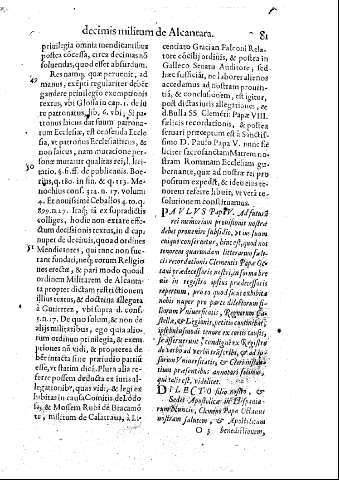 decimis militum de Alcantara. 81
priuilegia omnia mendicantibus
postea côcessa, circa decimas nô
soluendas, quod esset absurdum.
49
Res namq; quæ peruenit, ad
manus, exépti regulariter debet
gaudere priuilegio exemptionis
textus, vbi Glossa in cap. 1. de iu
re patronatus, lib. 6. vbi, Si pa-
tronus laicus dat suum patrona-
tum Ecclesiæ, est censenda Eccle
sia, vt patronus Ecclesiasticus, &
non laicus, nam mutatione perso-
næ mutatur qualitas rei, l. lici-
50
tatio. §. fi. ff. de publicanis. Boe-
rius, q. 180. in fin. & q. 213. Me-
nochius conf. 314. n. 17. volum.
4. Et nouissimè Ceballos 4. to. q.
899. n. 17. Itaq; ià ex supradictis
colliges, hodio non extare effe-
ctum decisionis textus, in d. cap.
nuper de decimis, quoad ordines
Mendicantes, qui tunc non fue-
rant fundati, necq; eorum Religio
nes erectæ, & pari modo quoad
ordinem Militarem de Alcanta-
ra propter dictam restrictionem
illius textus, & doctrina allegata
à Gutierrez, vbi supra d. conf.
1. n. 17. De quo solum, & non de
alijs militatibus, ego quia alio-
rum ordinũ priuilegia, & exem-
ptiones nõ vidi, & propterea de
his intacta sine præiudicio partiũ
esse, vt statim dicã. Plura alia re-
ferre possem deducta ex iuris al-
legationib', quas vidi, & legi ex
hibitas in causa Comitis de Lodo
sa, & Mossem Rubi de Bracamõ
te, militum de Calatraua, à Li-
cenciato Gracian Falconi Rela-
tore cõsilij ordinis, & postea in
Galleco Senatu Auditore, sed
hæc sufficiãt, ne labores alienos
accedamus ad nostram prouin-
tiã, & conclusionem, est igitur,
post dictas iuris allegationes, &
d. Bulla SS Clemẽtis Papæ VIII.
fælicis recordationis, & postea
seruari præceptum est à Sanctissi-
mo D. Paulo Papa V. nunc fæ
liciter sacrosanctam Matrem no-
stram Romanam Ecclesiam gu-
bernante, quæ ad nostræ rei pro
positum expedit, & ideo eius te-
norem referre libuit, vt verà re-
solutionem constituamus.
PAVLVS Papa V. Ad futurã
rei memoriam prouisionis nostræ
debet prouenire subsidio, vt ius suum
cuique conseruetur, hinc est, quod nos
tenorem quarundam litterarum fælicis
recordationis Clementis Papæ Oc
taui prædecessoris nostri, in forma bre
uis in registro ipsius prædecessoris
repertum, pro eo quod sicut exhibita
nobis nuper pro parte dilectorum fi-
liorum Vniuersitatis, Regnorum Ca-
stellæ, & Legionis, petitio continebat,
ipsi huiusmodi tenore ex certis causis,
se asserunt, &c. tendigo ex Registro
de verbo ad verbũ trãscribi, & ad ip-
sorum Vniuersitatis, & Cleri instan-
tiam præsentibus annotari fecimus,
qui talis est, videlicet.
DILECTO filio nostro, &
Sedis Apostolicæ in Hispania-
rum Nuncio, Clemens Papa Octauus
nostram salutem, & Apostolicam
O 3 benedictionem,